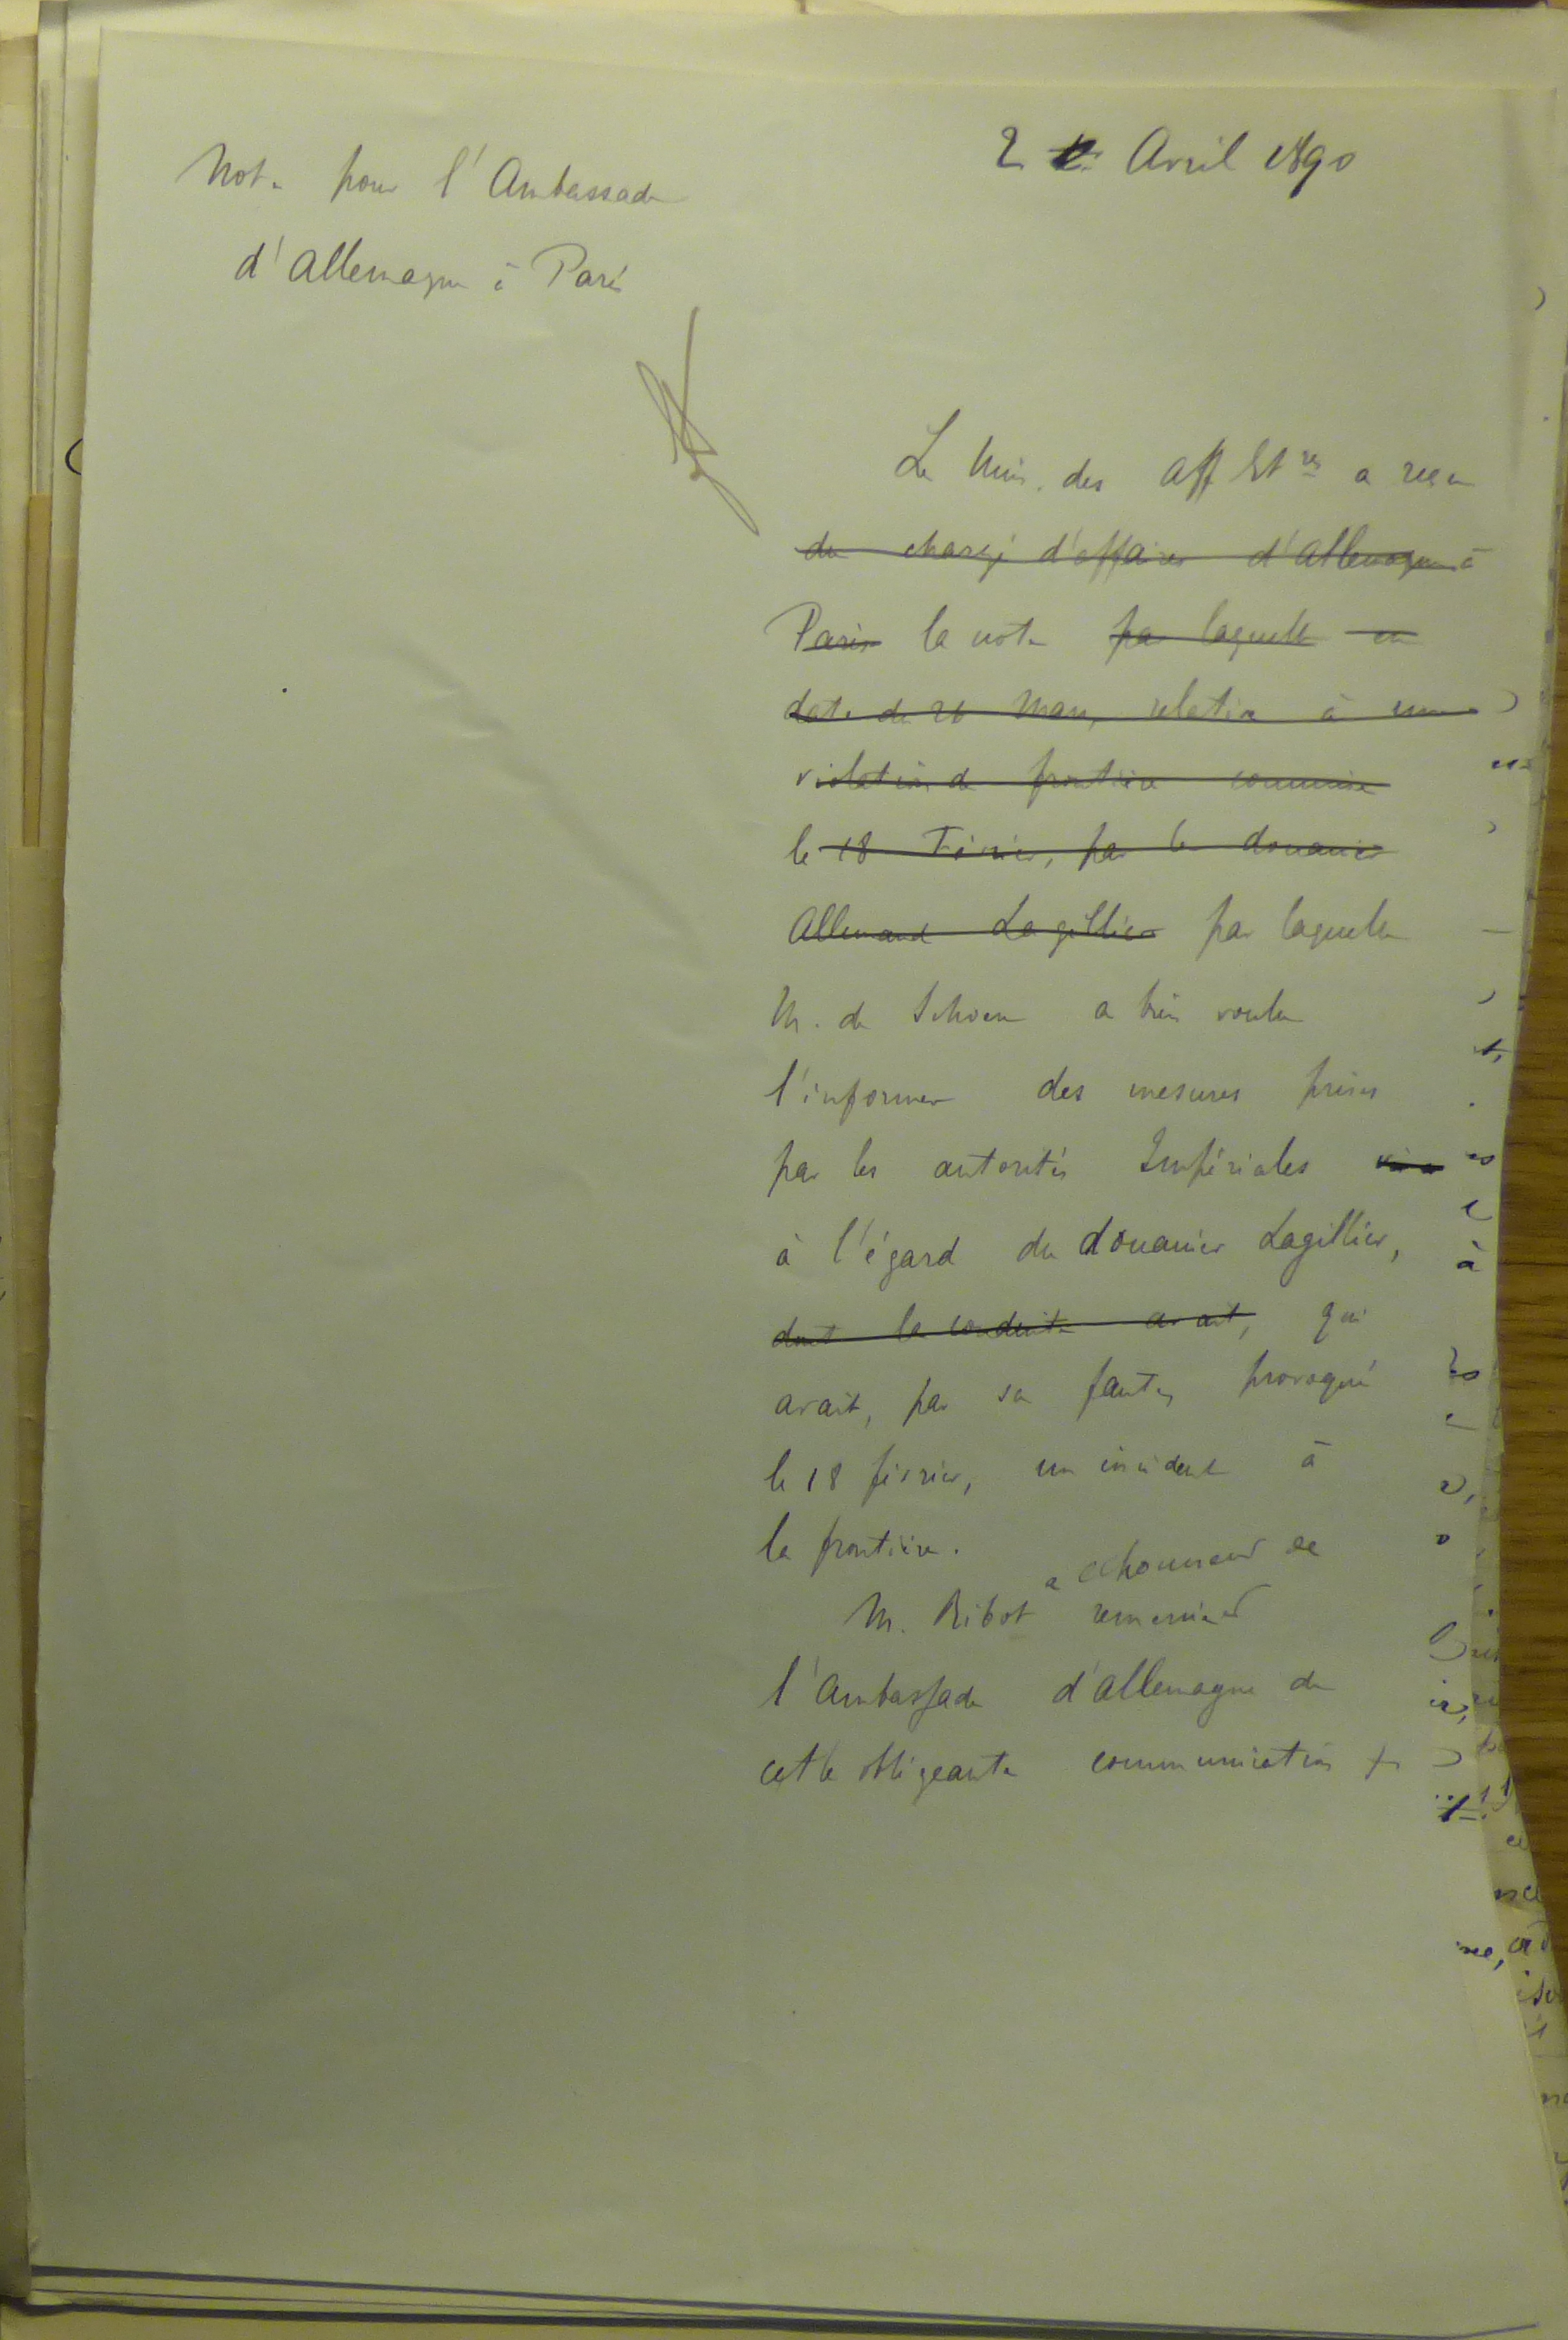 2 Avril 1890
Note pour l'Ambassade
d'Allemagne à Paris
Le Min. des Aff Etres a reçu
du chargé d'affaires d'Allemagne à
Paris la note par laquelle en
date du 26 Mars, relative à une
violation de frontière commise
le 18 Février, par le douanier
Allemand Lagillier par laquelle
M. de Schoen a bien voulu
l'informer des mesures prises
par les autorités Impériales
à l'égard du douanier Lagillier,
dont la conduite avait, qui
avait, par sa faute, provoqué
le 18 février, un incident à
la frontière.
a l'honneur de
M. Ribot remercier
l'Ambassade d'Allemagne de
cette obligeante communication